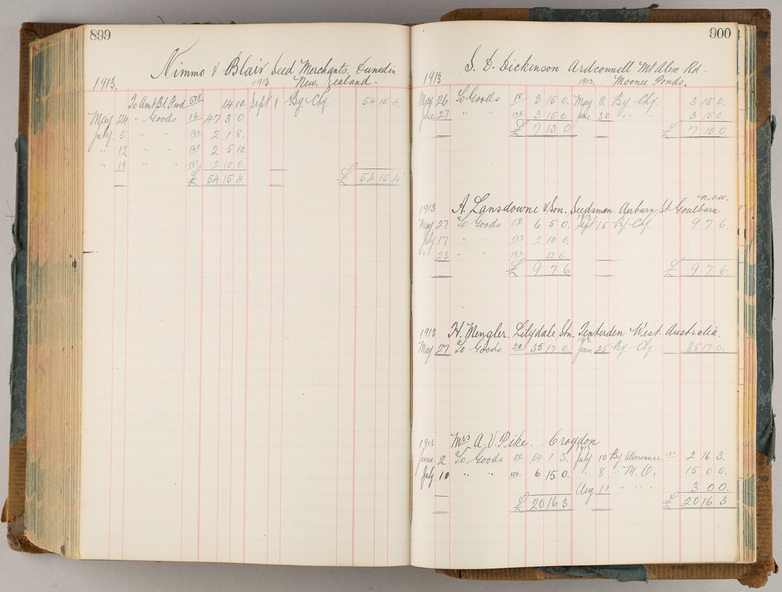 899
Nimmo & Blair Seed Merchants. Dunedin
1913. 1913 New Zealand.
To Amt Bt Fwd 578 14 10 Sept 1 By Chq 54 15 4
May 24 " Goods 47 3 0
July 5 " " 2 1 8
" 12 " " 2 5 10
" 19 " " 2 10 0
£ 54 15 4 £ 54 15 4
900
S. D. Dickinson Ardconnell Mt Alex Rd.
1913 1913. Moonee Ponds.
May 26 To Goods 3 15 0 May 8 By Chq 3 15 0
June 27 " " 3 15 0 June 30 " " 3 15 0
£ 7 10 0 £ 7 10 0
N.S.W.
1913 A. Lansdowne & Son. Seedsmen Auburn St Goulburn
May 27 To Goods 6 5 0 Sept 15 By Chq 9 7 6
July 17 " " 2 10 0
" 23 " " 12 6
£ 9 7 6 £ 9 7 6
1913 H. Mengler. Lilydale Stn. Tenterden West. Australia
May 27 To Goods 35 17 0 June 25 By Chq 35 17 0
Mrs A. V. Pike. Croydon
June 2 To Goods 14 1 3 July 10 By Allowance 2 16 3
July 10 " " 6 15 0 " 8 " M.O. 15 0 0
Aug 11 " " 3 0 0
£ 20 16 3 £ 20 16 3